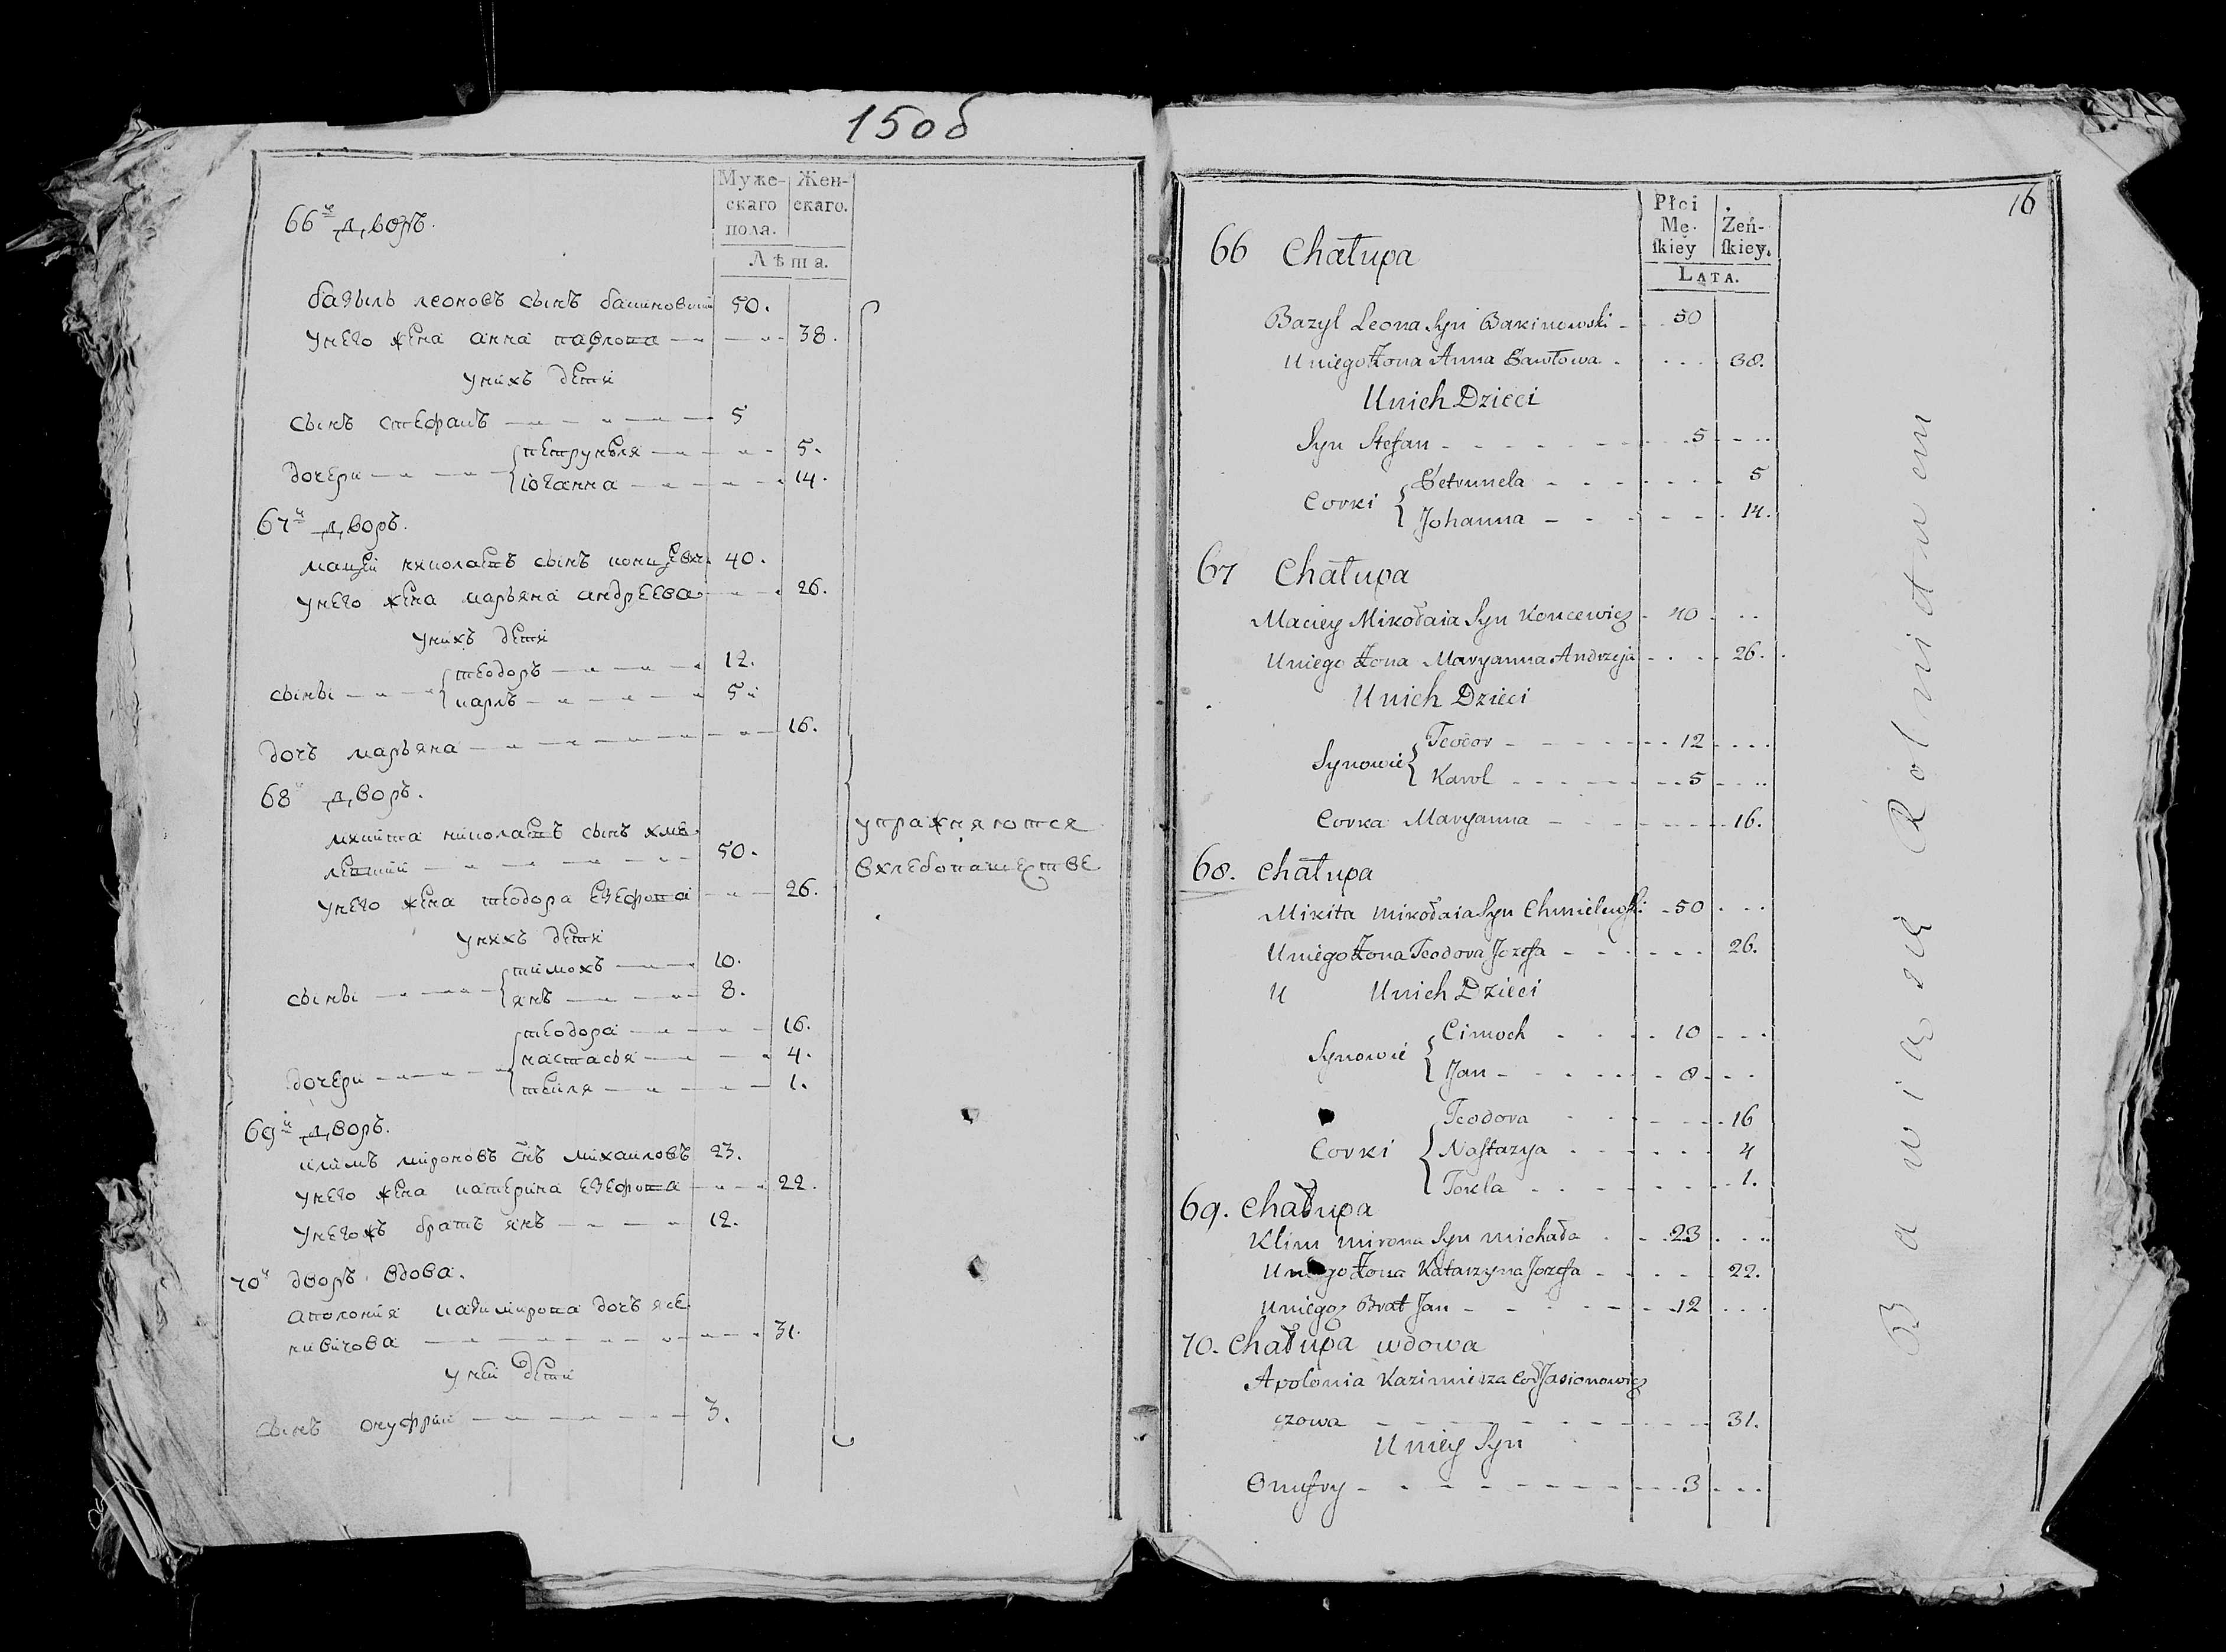 150б
Муже- Жен-
скаго скаго.
пола.
Лѣта.
66й дворъ.
базыль леоновъ сынъ бакиновский 50.
унего жена анна павлова 38.
унихъ дети
сынъ стефанъ 5
дочери петрунеля 5.
иоганна 14.
67й дворъ.
мацей николаевъ сынъ концевич 40.
унего жена марьяна андреева 26.
унихъ дети
теодоръ 12.
сыны
карлъ 5
дочь марьяна 16.
68й дворъ.
микита николаевъ сынъ хме
левский 50.
унего жена теодора езефова 26.
унихъ дети
тимохъ 10.
сыны
янъ 8.
теодора 16.
настасья 4.
дочери
текля 1.
69й дворъ.
климъ мироновъ снъ михаиловъ 23.
унего жена катерина езефова 22.
унегожъ братъ янъ 12.
70й дворъ вдова.
аполония казимирова дочь ясе
новичова 31.
уней дети
сынъ онуфрий 3.
упражняются
вхлебопашестве
16
Płci
Mę- Żeń-
ſkiey ſkiey.
LATA.
66 Chałupa
Bazyl Leona Syn Bakinowski 50
Uniego Żona Anna Pawłowa 38.
Unich Dzieci
Syn Stefan 5
Petrunela 5
Corki
Johanna 14.
67 Chałupa
Maciey Mikołaia Syn Koncewicz 40
Uniego Żona Maryanna Andrzeja 26.
Unich Dzieci
Teodor 12
Synowie
Karol 5
Corka Maryanna 16.
68. Chałupa
Mikita Mikołaia Syn Chmielewski 50
Uniego Żona Teodora Jozefa 26.
U Unich Dzieci
Cimoch 10
Synowie
Jan 8
Teodora 16
Corki Nastazya 4
Tekla 1.
69. Chałupa
Klim Mirona Syn Michała 23
Uniego Żona Katarzyna Jozefa 22.
Uniegoz Brat Jan 12
70. Chałupa wdowa
Apolonia Kazimierza Cor Jasionowicz
czowa 31.
Uniey Syn
Onufry 3
Bawią się Rolnictwem